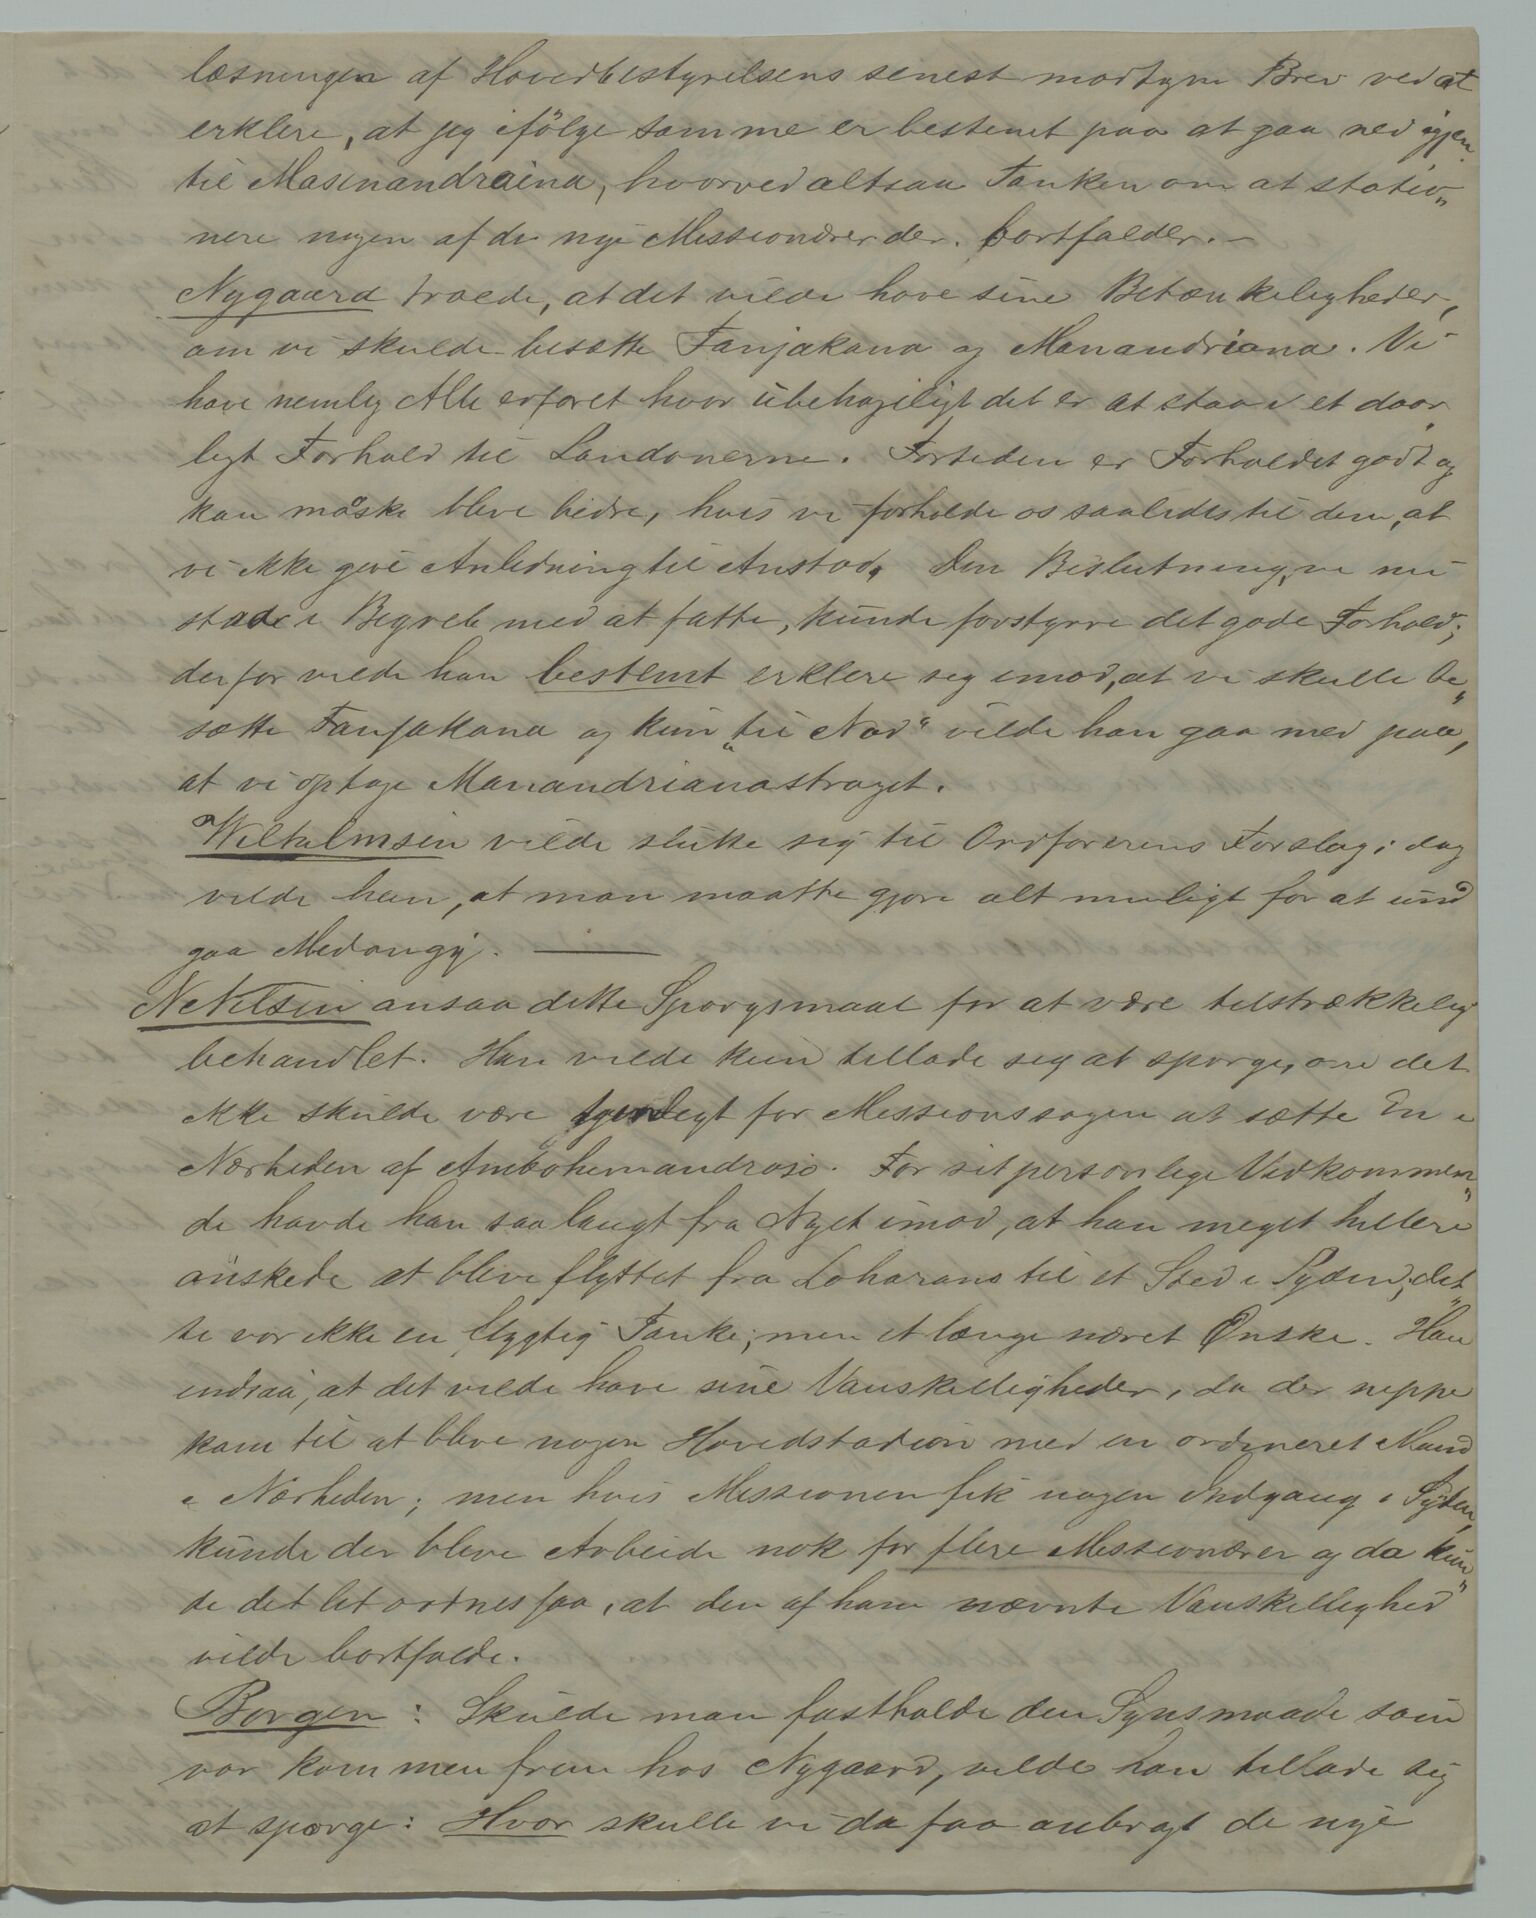 læsningen af Hovedbestyrelsens senest modtagne Brev ved at
erklere, at jeg ifölge samme er bestemt paa at gaa ned igjen
til Masinandraina, hvorved altsaa Tanken om at statio„
nere nogen af de nye Missionærer der, bortfalder. –
Nygaard troede, at det vilde have sine Betænkeligheder,
om vi skulde besætte Fanjakana og Manandriana. Vi
have nemlig Alle erfaret hvor übehageligt det er at staa i et daar„
ligt Forhold til Londonerne. Fortiden er Forholdet godt og
kan måske blive bedre, hvis vi forholde os saaledes til dem, at
vi ikke give Anledning til Anstöd. Den Beslutning, vi nu
stode i Begreb med at fatte, kunde forstyrre det gode Forhold;
derfor vilde han bestemt erklere sig imod, at vi skulle be„
sætte Fanjakana og kun „til Nød“ vilde han gaa med paa,
at vi optage Manandrianastrøget.
Wilhelmsen vilde slutte sig til Ordførerens Forslag; dog
vilde han, at man maatte gjøre alt muligt for at und
gaa Medongy. —
Ne Nilsen ansaa dette Spørgsmaal for at være tilstrækkelig
behandlet. Han vilde kun tillade sig at spørge, om det
ikke skulde være tjenligt for Missionssagen at sætte En i
Nærheden af Ambohimandroso. For sit personlige Vedkommen„
de havde han saa langt fra Noget imod, at han meget hellere
önskede at blive flyttet fra Loharano til et Sted i Syden; det„
te var ikke en flygtig Tanke, men et længe næret Ønske. Han
indsaa, at det vilde have sine Vanskeligheder, da der neppe
kom til at blive nogen Hovedstation med en ordineret Mand
i Nærheden; men hvis Missionen fik nogen Indgang i Syden,
kunde der blive Arbeide nok for flere Missionærer og da kun„
de det let ordnes saa, at den af ham nævnte Vanskelighed
vilde bortfalde.
Borgen: Skulde man fastholde den Synsmaade som
var kommen frem hos Nygaard, vilde han tillade sig
at spørge: Hvor skulle vi da faa anbragt de nye